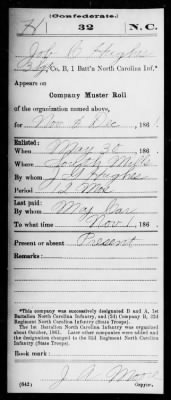 (Confederate)
H 32 N. C.
Hughes
Co. B, 1 Batt'n North Carolina Inf.*
Appears on
Company Muster Roll
of the organization named above,
for Nov & Dec, 186
Enlisted:
When May 30, 186
Where Mills
By whom J G Hughes
Period 12 Mos
Last paid:
By whom Maj
To what time Nov 1, 186
Present or absent Present
Remarks:
*This company was successively designated B and A, 1st
Battalion North Carolina Infantry, and (2d) Company B, 32d
Regiment North Carolina Infantry (State Troops).
The 1st Battalion North Carolina Infantry was organized
about October, 1861. Later companies were added and
the designation changed to the 32d Regiment North Carolina
Infantry (State Troops).
Book mark:
(642) J. A. Moore
Copyist.